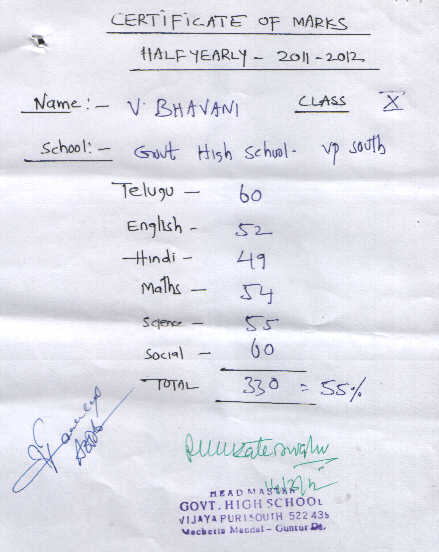 CERTIFICATE OF MARKS
HALF YEARLY - 2011-2012
Name:- V. BHAVANI CLASS X
School:- Govt High School. vp south
Telugu - 60
English - 52
Hindi - 49
Maths - 54
Science - 55
Social - 60
TOTAL 330 = 55%
HEAD MASTER
GOVT. HIGH SCHOOL
VIJAYA PURI SOUTH 522 439
Macherla Mandal - Guntur Dt.